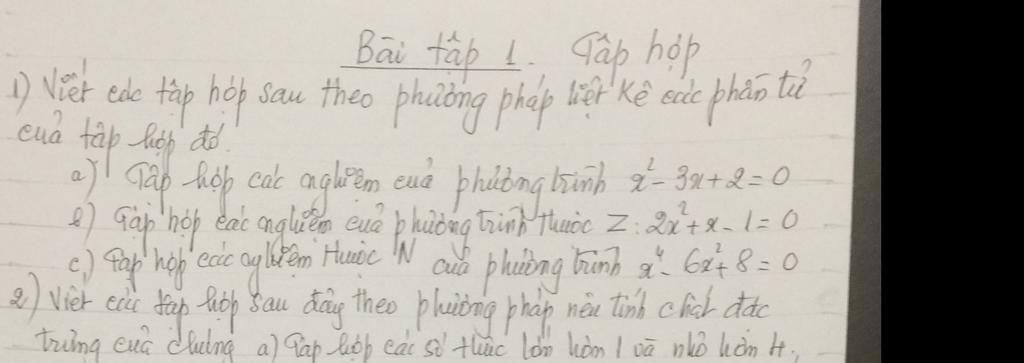 Bài tập 1. Tập hợp
1) Viết các tập hợp sau theo phương pháp liệt kê các phần tử
của tập hợp đó.
a) Tập hợp các nghiệm của phương trình x² - 3x + 2 = 0
b) Tập hợp các nghiệm của phương trình thuộc Z: 2x² + x - 1 = 0
c) Tập hợp các nghiệm thuộc N của phương trình x⁴ - 6x² + 8 = 0
2) Viết các tập hợp sau đây theo phương pháp nêu tính chất đặc
trưng của chúng a) Tập hợp các số thực lớn hơn 1 và nhỏ hơn 4.